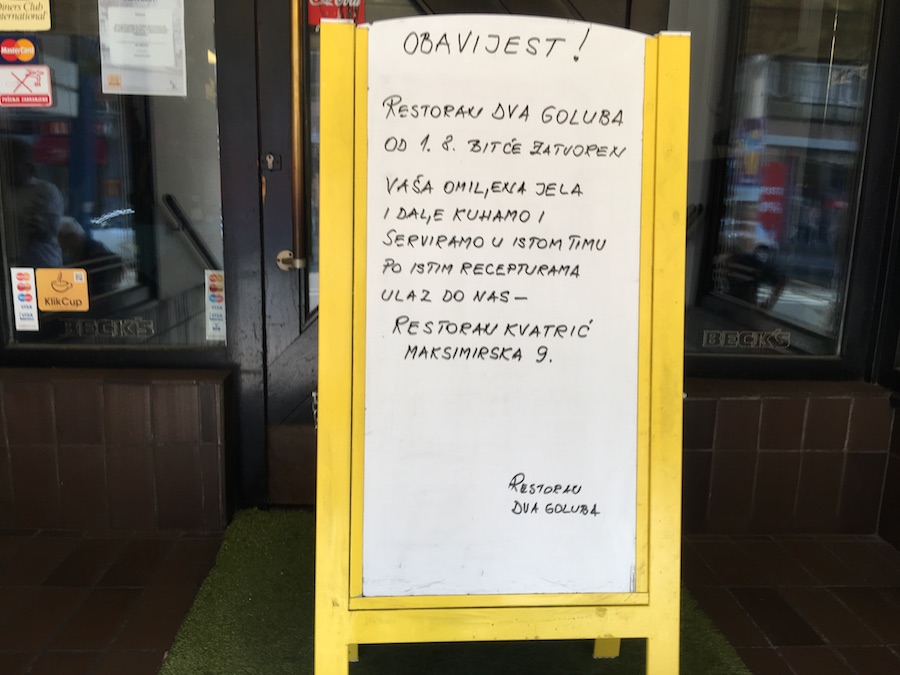 Diners Club
International
MasterCard
PUŠENJE ZABRANJENO
OBAVIJEST!
RESTORAN DVA GOLUBA
OD 1. 8. BIT ĆE ZATVOREN
VAŠA OMILJENA JELA
I DALJE KUHAMO I
SERVIRAMO U ISTOM TIMU
PO ISTIM RECEPTURAMA
ULAZ DO NAS –
RESTORAN KVATRIĆ
MAKSIMIRSKA 9.
RESTORAN
DVA GOLUBA
KlikCup
BECK'S
BECK'S